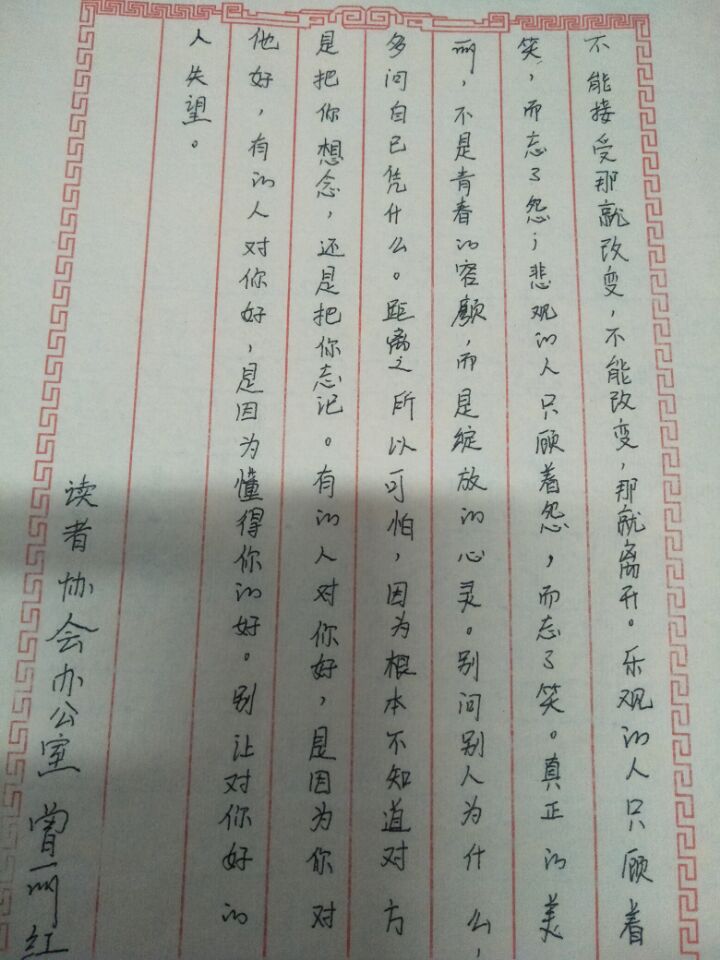 不能接受那就改变，不能改变，那就离开。乐观的人只顾着
笑，而忘了怨；悲观的人只顾着怨，而忘了笑。真正的美
丽，不是青春的容颜，而是绽放的心灵。别问别人为什么，
多问自己凭什么。距离之所以可怕，因为根本不知道对方
是把你想念，还是把你忘记。有的人对你好，是因为你对
他好，有的人对你好，是因为懂得你的好。别让对你好的
人失望。
读者协会办公室 曾丽红